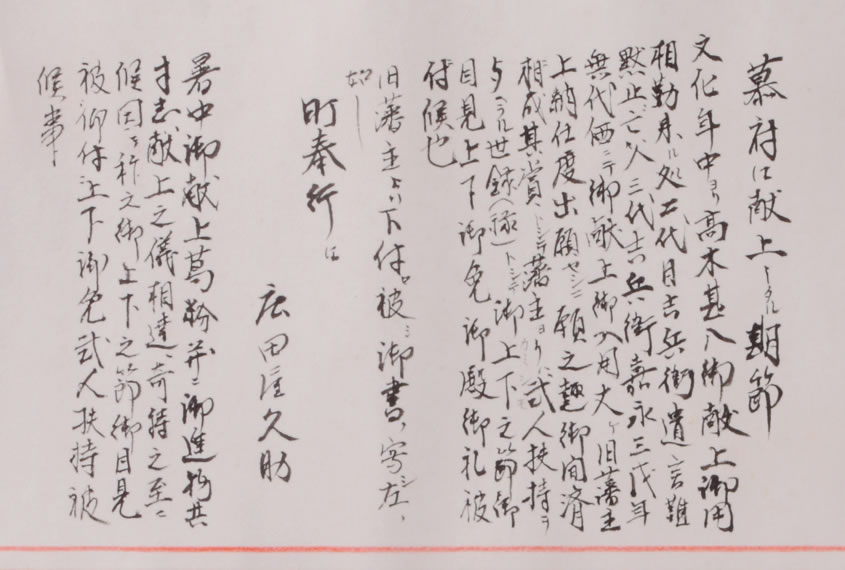 幕府に献上シタル期節
文化年中ヨリ高木甚八御献上御用
相勤来ル処二代目吉兵衛遺言難
黙止亡父三代吉兵衛嘉永三戌年
無代価ニテ御献上御入用丈ケ旧藩主
上納仕度出願セシニ願之趣御聞済
相成其賞トシテ藩主ヨリ弐人扶持ヲ
与ヘラル世録(禄)トシテ御上下之節御
目見上下御免御殿御礼被
付候也
旧藩主より下付被シ御書ノ写左ノ
如シ
町奉行に
広田屋久助
暑中御献上葛粉并ニ御進物共
寸志献上之儀相達奇特之至ニ
候因テ称之御上下之節御目見
被仰付上下御免弐人扶持被
候事